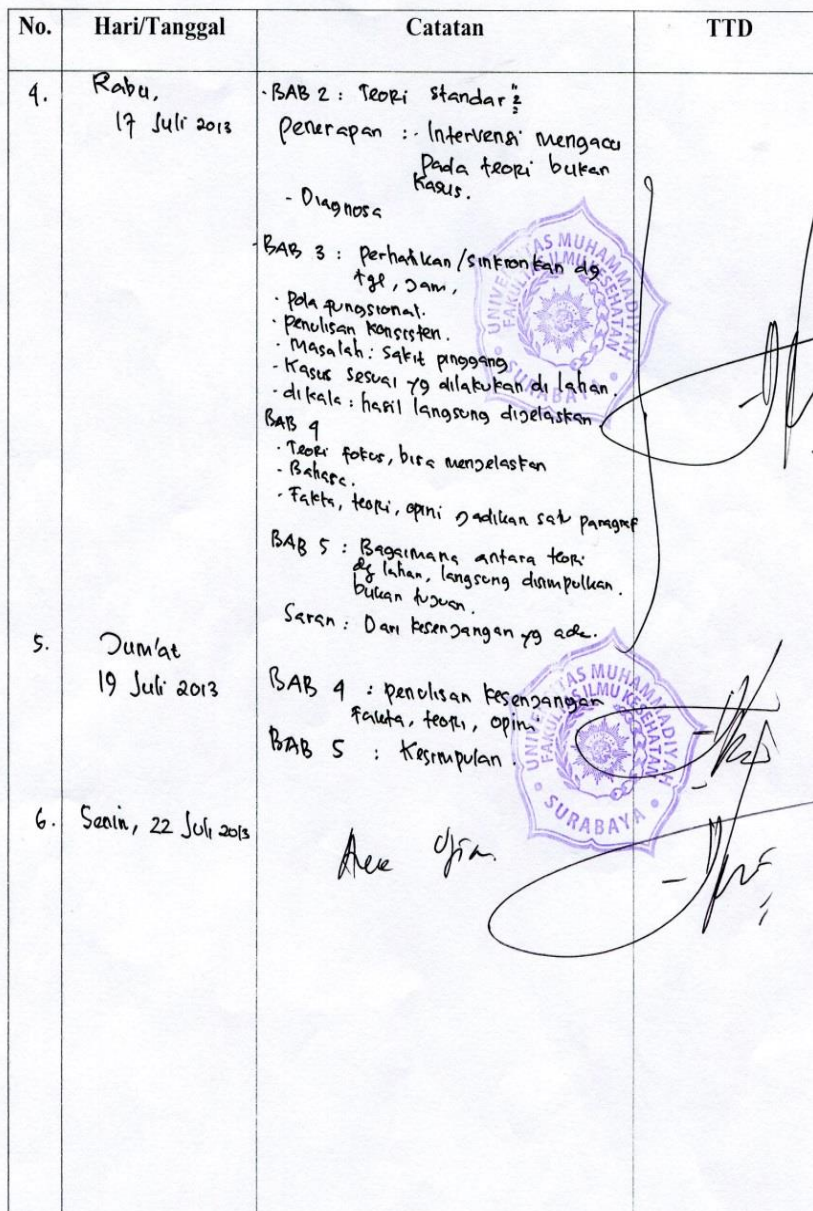 No. Hari/Tanggal Catatan TTD
4. Rabu, 17 Juli 2013
- BAB 2 : Teori standar "2
penerapan : - Intervensi mengacu
pada teori bukan
Kasus.
- Diagnosa
- BAB 3 : perhatikan / sinkronkan dg
tgl, jam,
- pola fungsional.
- penulisan konsisten.
- Masalah : sakit pinggang
- Kasus sesuai yg dilakukan di lahan.
- di kala : hasil langsung dijelaskan
BAB 4
- Teori fokus, bisa menjelaskan
- Bahasa.
- Fakta, teori, opini jadikan satu paragraf
BAB 5 : Bagaimana antara teori
dg lahan, langsung disimpulkan.
bukan tujuan.
Saran : Dari kesenjangan yg ada.
5. Jum'at
19 Juli 2013
BAB 4 : penulisan kesenjangan
Fakta, teori, opini
BAB 5 : Kesimpulan.
6. Senin, 22 Juli 2013
Acc Ujian
UNIVERSITAS MUHAMMADIYAH
FAKULTAS ILMU KESEHATAN
SURABAYA
UNIVERSITAS MUHAMMADIYAH
FAKULTAS ILMU KESEHATAN
SURABAYA